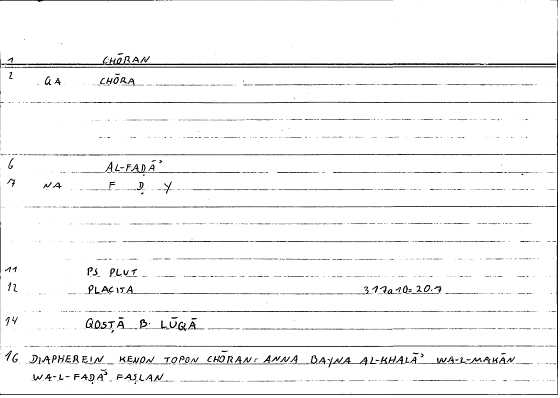 1 CHŌRAN
2 GA CHŌRA
6 AL-FAḌĀʾ
7 NA F Ḍ Y
11 PS PLUT
12 PLACITA 317a10=20.1
14 QOSṬĀ B. LŪQĀ
16 DIAPHEREIN KENON TOPON CHŌRAN: ANNA BAYNA AL-KHALĀʾ WA-L-MAKĀN
WA-L-FAḌĀʾ FAṢLAN